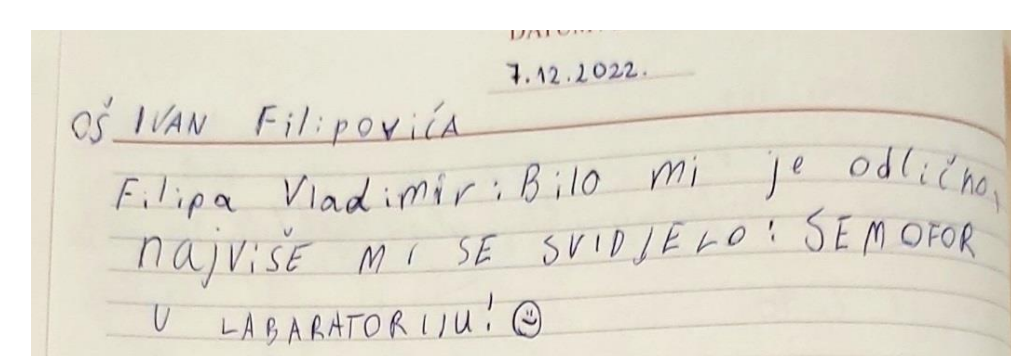 7.12.2022.
OŠ IVAN FilipovićA
Filipa Vladimir: Bilo mi je odlično,
najviŠE MI SE SVIDJELO: SEMOFOR
U LABARATORIJU! ☺